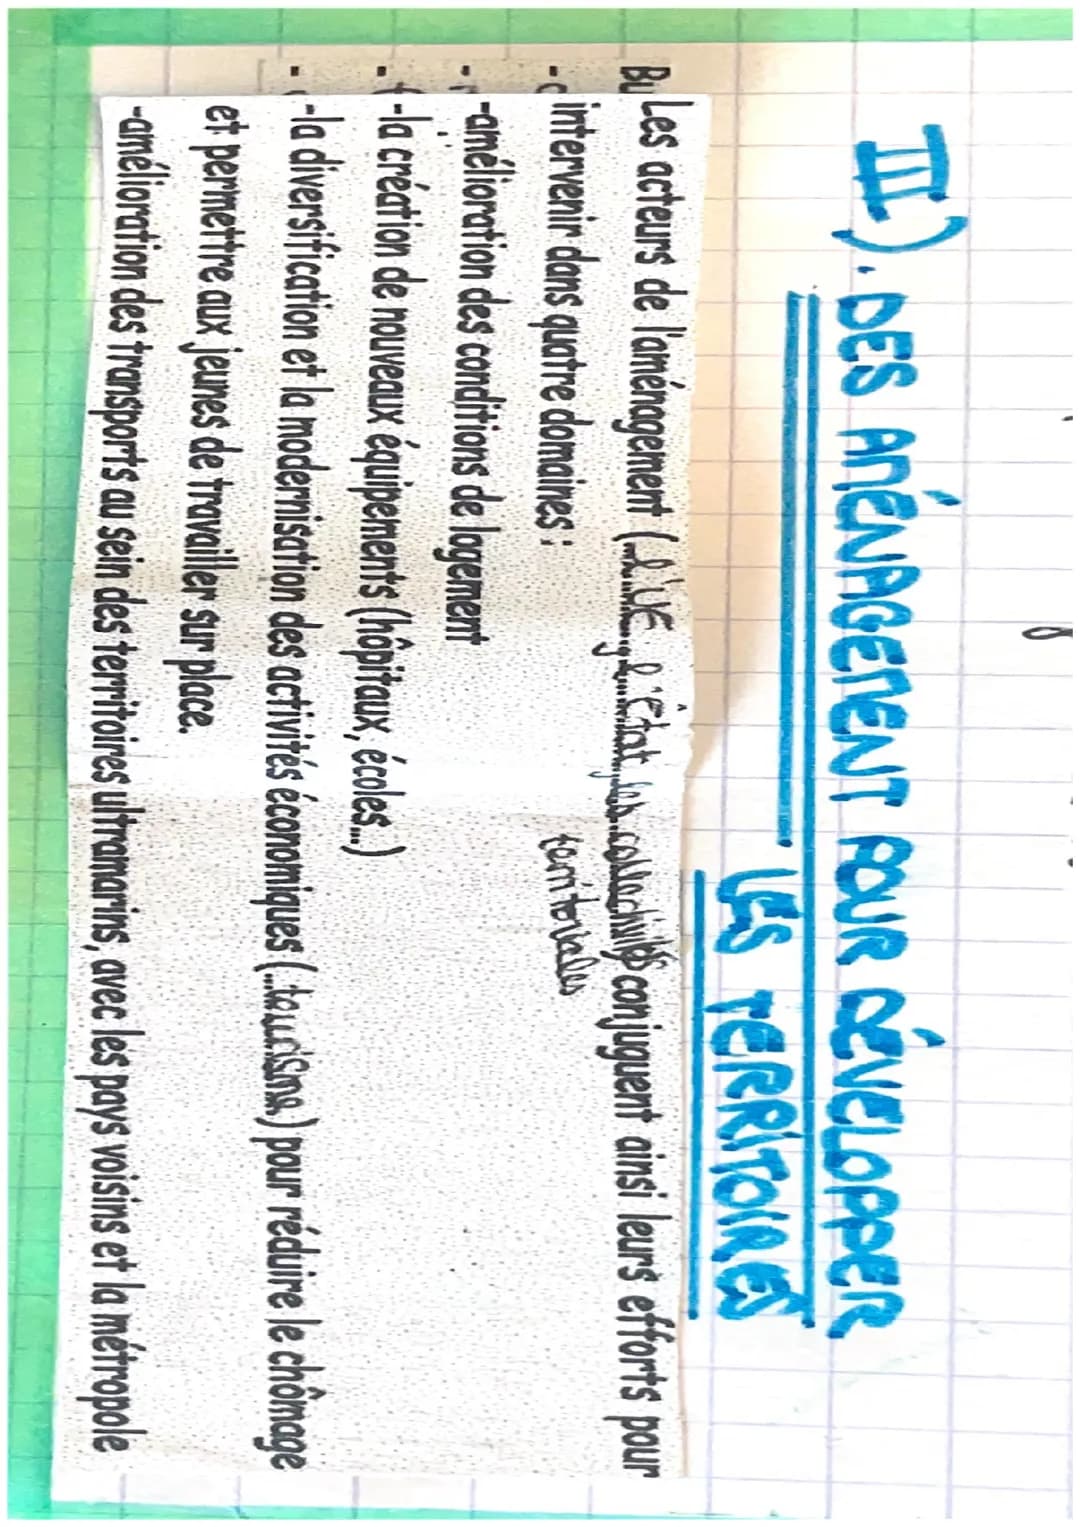 III.) . DES AMÉNAGEMENT POUR DÉVELOPPER
LES TERRITOIRES
Les acteurs de l'aménagement (l'UE, l'état, les collectivités conjuguent ainsi leurs efforts pour
territoriales
intervenir dans quatre domaines :
-amélioration des conditions de logement
-la création de nouveaux équipements (hôpitaux, écoles...)
-la diversification et la modernisation des activités économiques (...tourisme) pour réduire le chômage
et permettre aux jeunes de travailler sur place.
-amélioration des transports au sein des territoires ultramarins, avec les pays voisins et la métropole